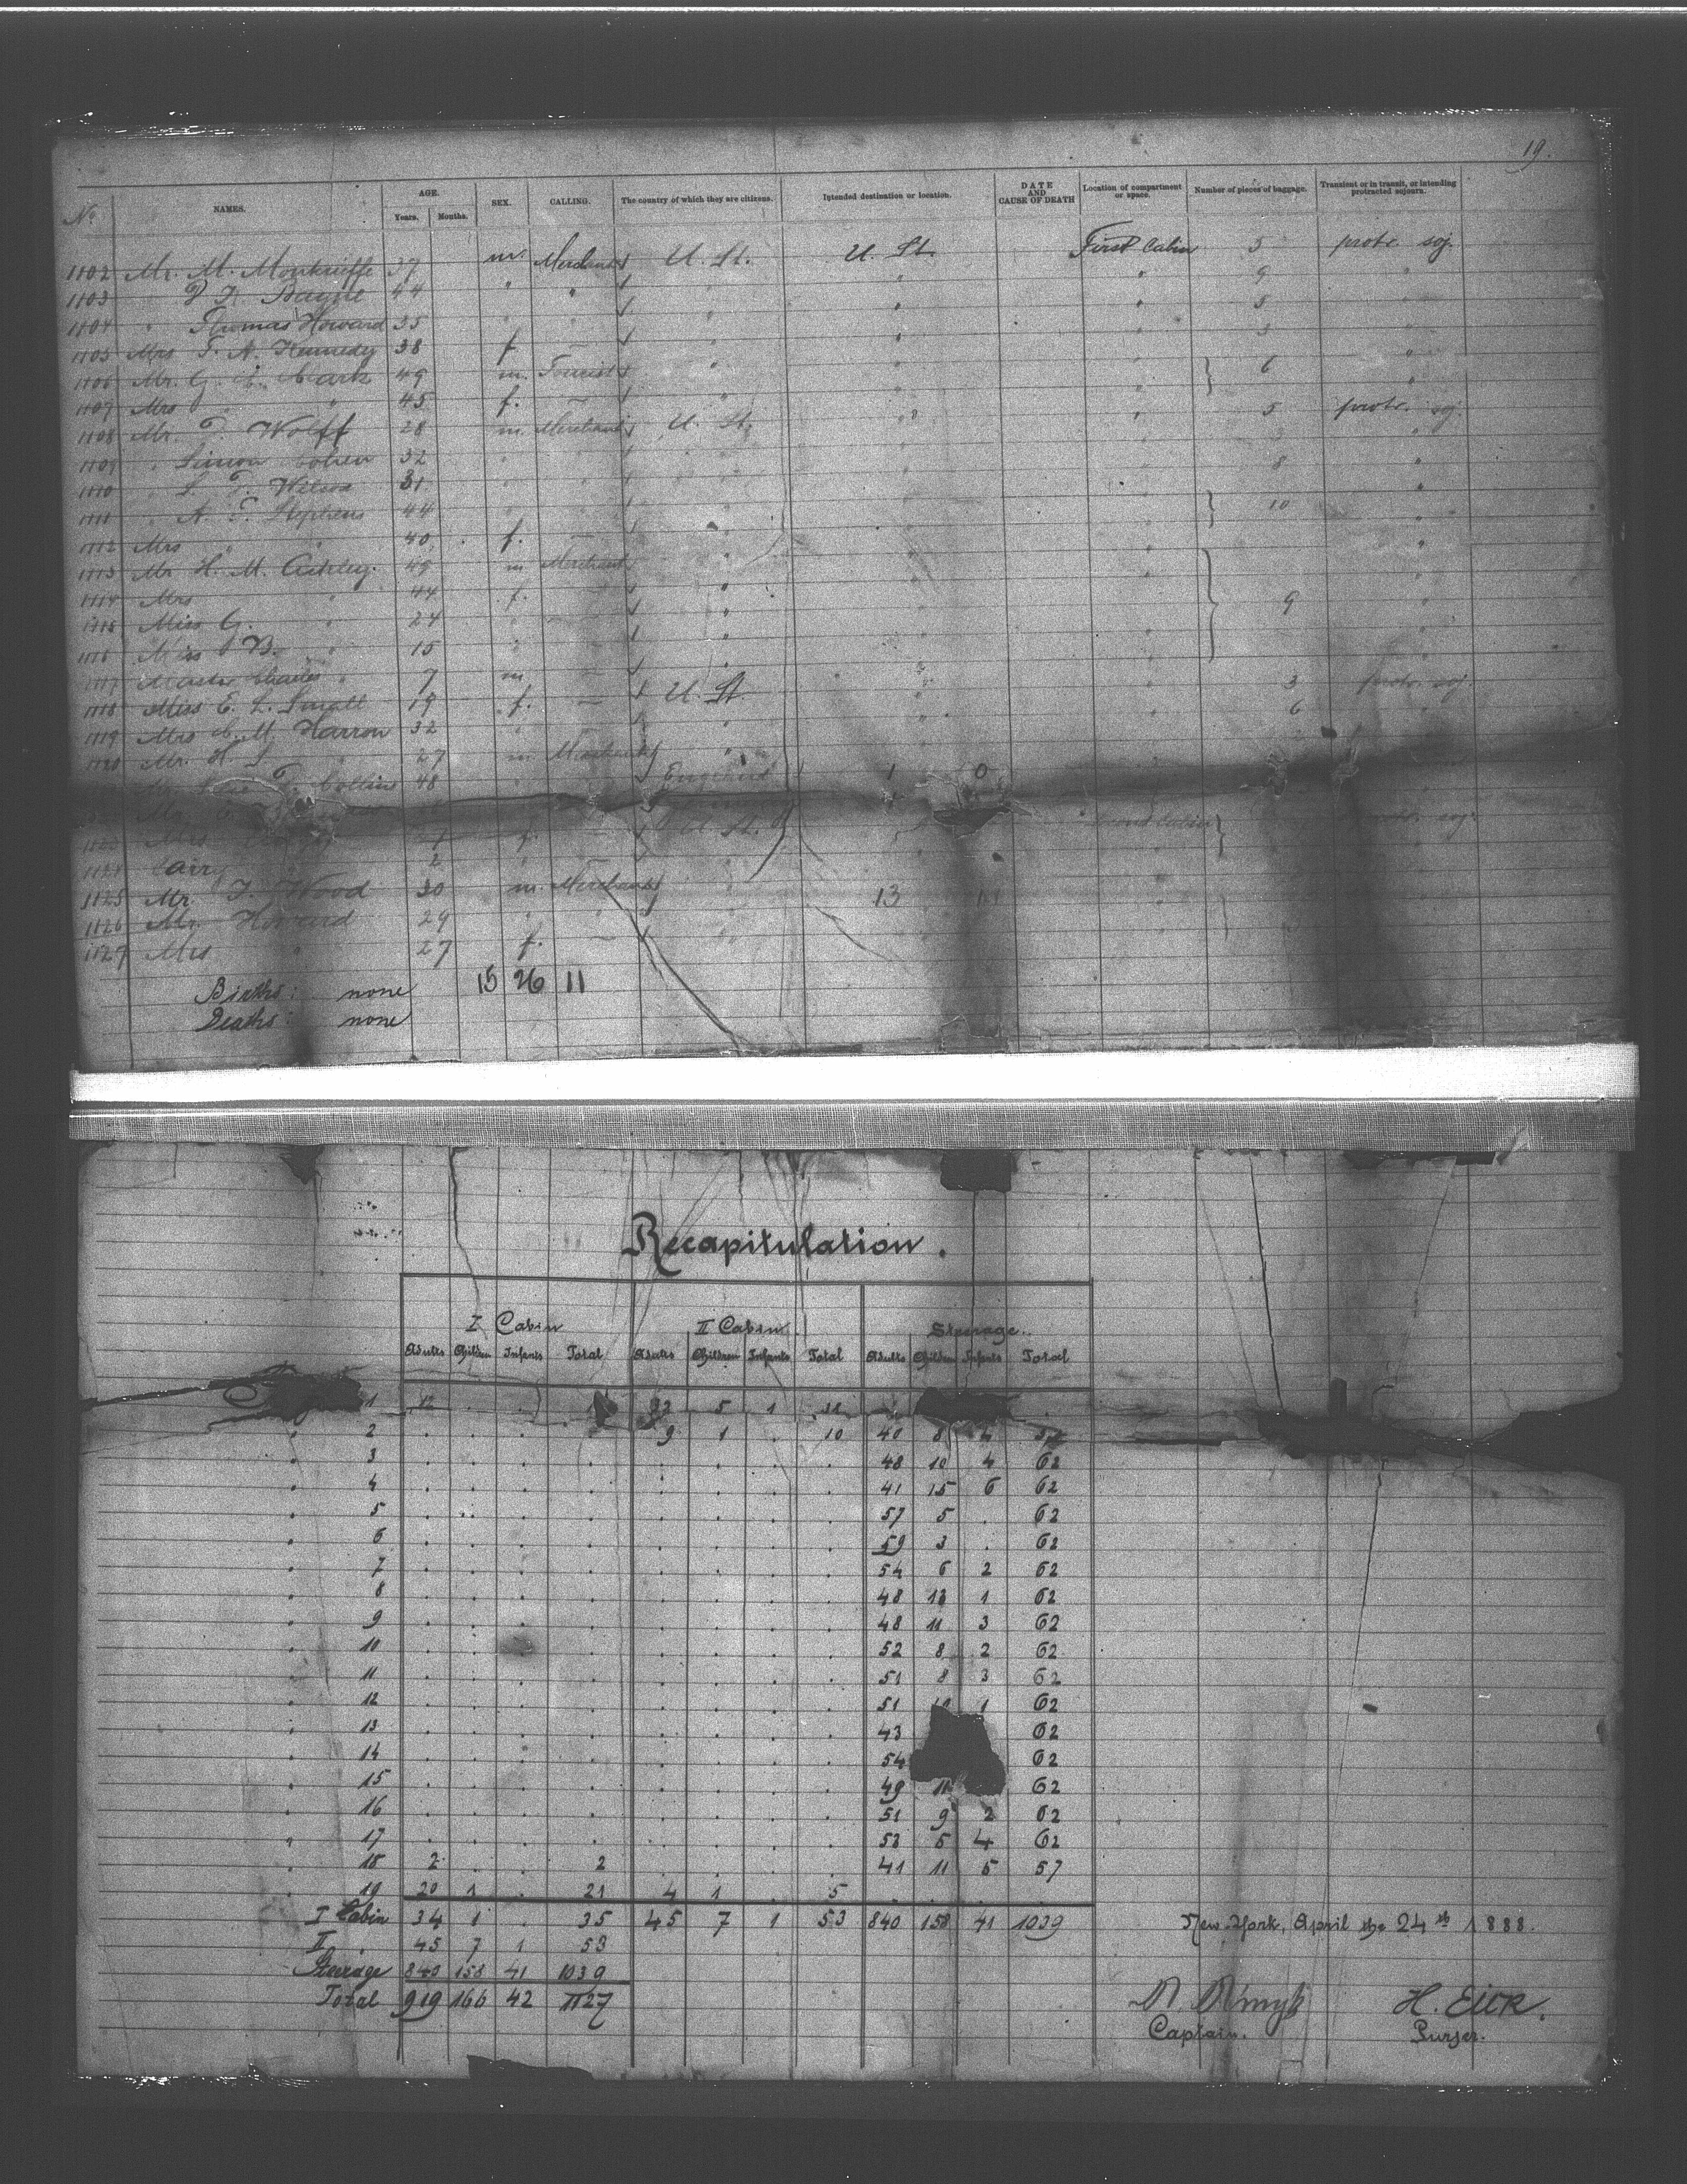 19.
No. NAMES. AGE. Years. Months. SEX. CALLING. The country of which they are citizens. Intended destination or location. DATE AND CAUSE OF DEATH Location of compartment or space. Number of pieces of baggage. Transient or in transit, or intending protracted sojourn.
1102 Mr. M. 37 m. Merchant U. St. U. St. First Cabin 5 protr. soj.
1103 " 44 " " " " " 9 "
1104 " Thomas Howard 35 " " " " " 5 "
1105 Mrs T. A. Kennedy 38 f. " " " 3 "
1106 Mr. G. Clark 49 m. Tourist " " " 6 "
1107 Mrs " " 45 f. — " " " "
1108 Mr. T. Wolff 28 m. Merchant U. St. " " 5 protr. soj.
1109 " Simon Cohen 32 " " " " " 3 "
1110 " 31 " " " " " 8 "
1111 " A. E. Stephens 44 " " " " " 10 "
1112 Mrs " " 40 f. " " " "
1113 Mr. H. M. 49 m Merchant " " " "
1114 Mrs " 44 f. — " " " 9 "
1115 Miss G. " 24 " " " " "
1116 Miss B. " 15 " " " " "
1117 Master Charles " 7 m " " " "
1118 Miss E. L. Small 19 f. — U. St. " " 3 protr. soj.
1119 Mrs C. M. Harron 32 " " " " 6
1120 Mr. H. S. " 27 m Merchant " "
Collins 48 England 1 0
Mr.
1123 Mrs f. — U. St. Second Cabin soj.
1124 Carry 2 "
1125 Mr. J. Wood 30 m. Merchant " 13
1126 Mr. Howard 29 " " "
1127 Mrs " 27 f. — "
Births: none 15 26 11
Deaths: none
Recapitulation.
I Cabin II Cabin Steerage.
Adults Children Infants Total Adults Children Infants Total Adults Children Infants Total
1 12 . . 32 5 1
" 2 . . . . 9 1 . 10 40 8 4
" 3 . . . . . . . . 48 10 4 62
" 4 . . . . . . . . 41 15 6 62
" 5 . . . . . . . . 57 5 . 62
" 6 . . . . . . . . 59 3 . 62
" 7 . . . . . . . . 54 6 2 62
" 8 . . . . . . . . 48 13 1 62
" 9 . . . . . . . . 48 11 3 62
" 10 . . . . . . . . 52 8 2 62
" 11 . . . . . . . . 51 8 3 62
" 12 . . . . . . . . 51 10 1 62
" 13 . . . . . . . . 43 62
" 14 . . . . . . . . 54 62
" 15 . . . . . . . . 49 11 62
" 16 . . . . . . . . 51 9 2 62
" 17 . . . . . . . . 53 5 4 62
" 18 2 . . 2 . . . . 41 11 5 57
" 19 20 1 . 21 4 1 . 5 . . . .
I Cabin 34 1 . 35 45 7 1 53 840 158 41 1039 New-York, April the 24th 1888.
II " 45 7 1 53
Steerage 840 158 41 1039
Total 919 166 42 1127
H. Eick.
Captain. Purser.